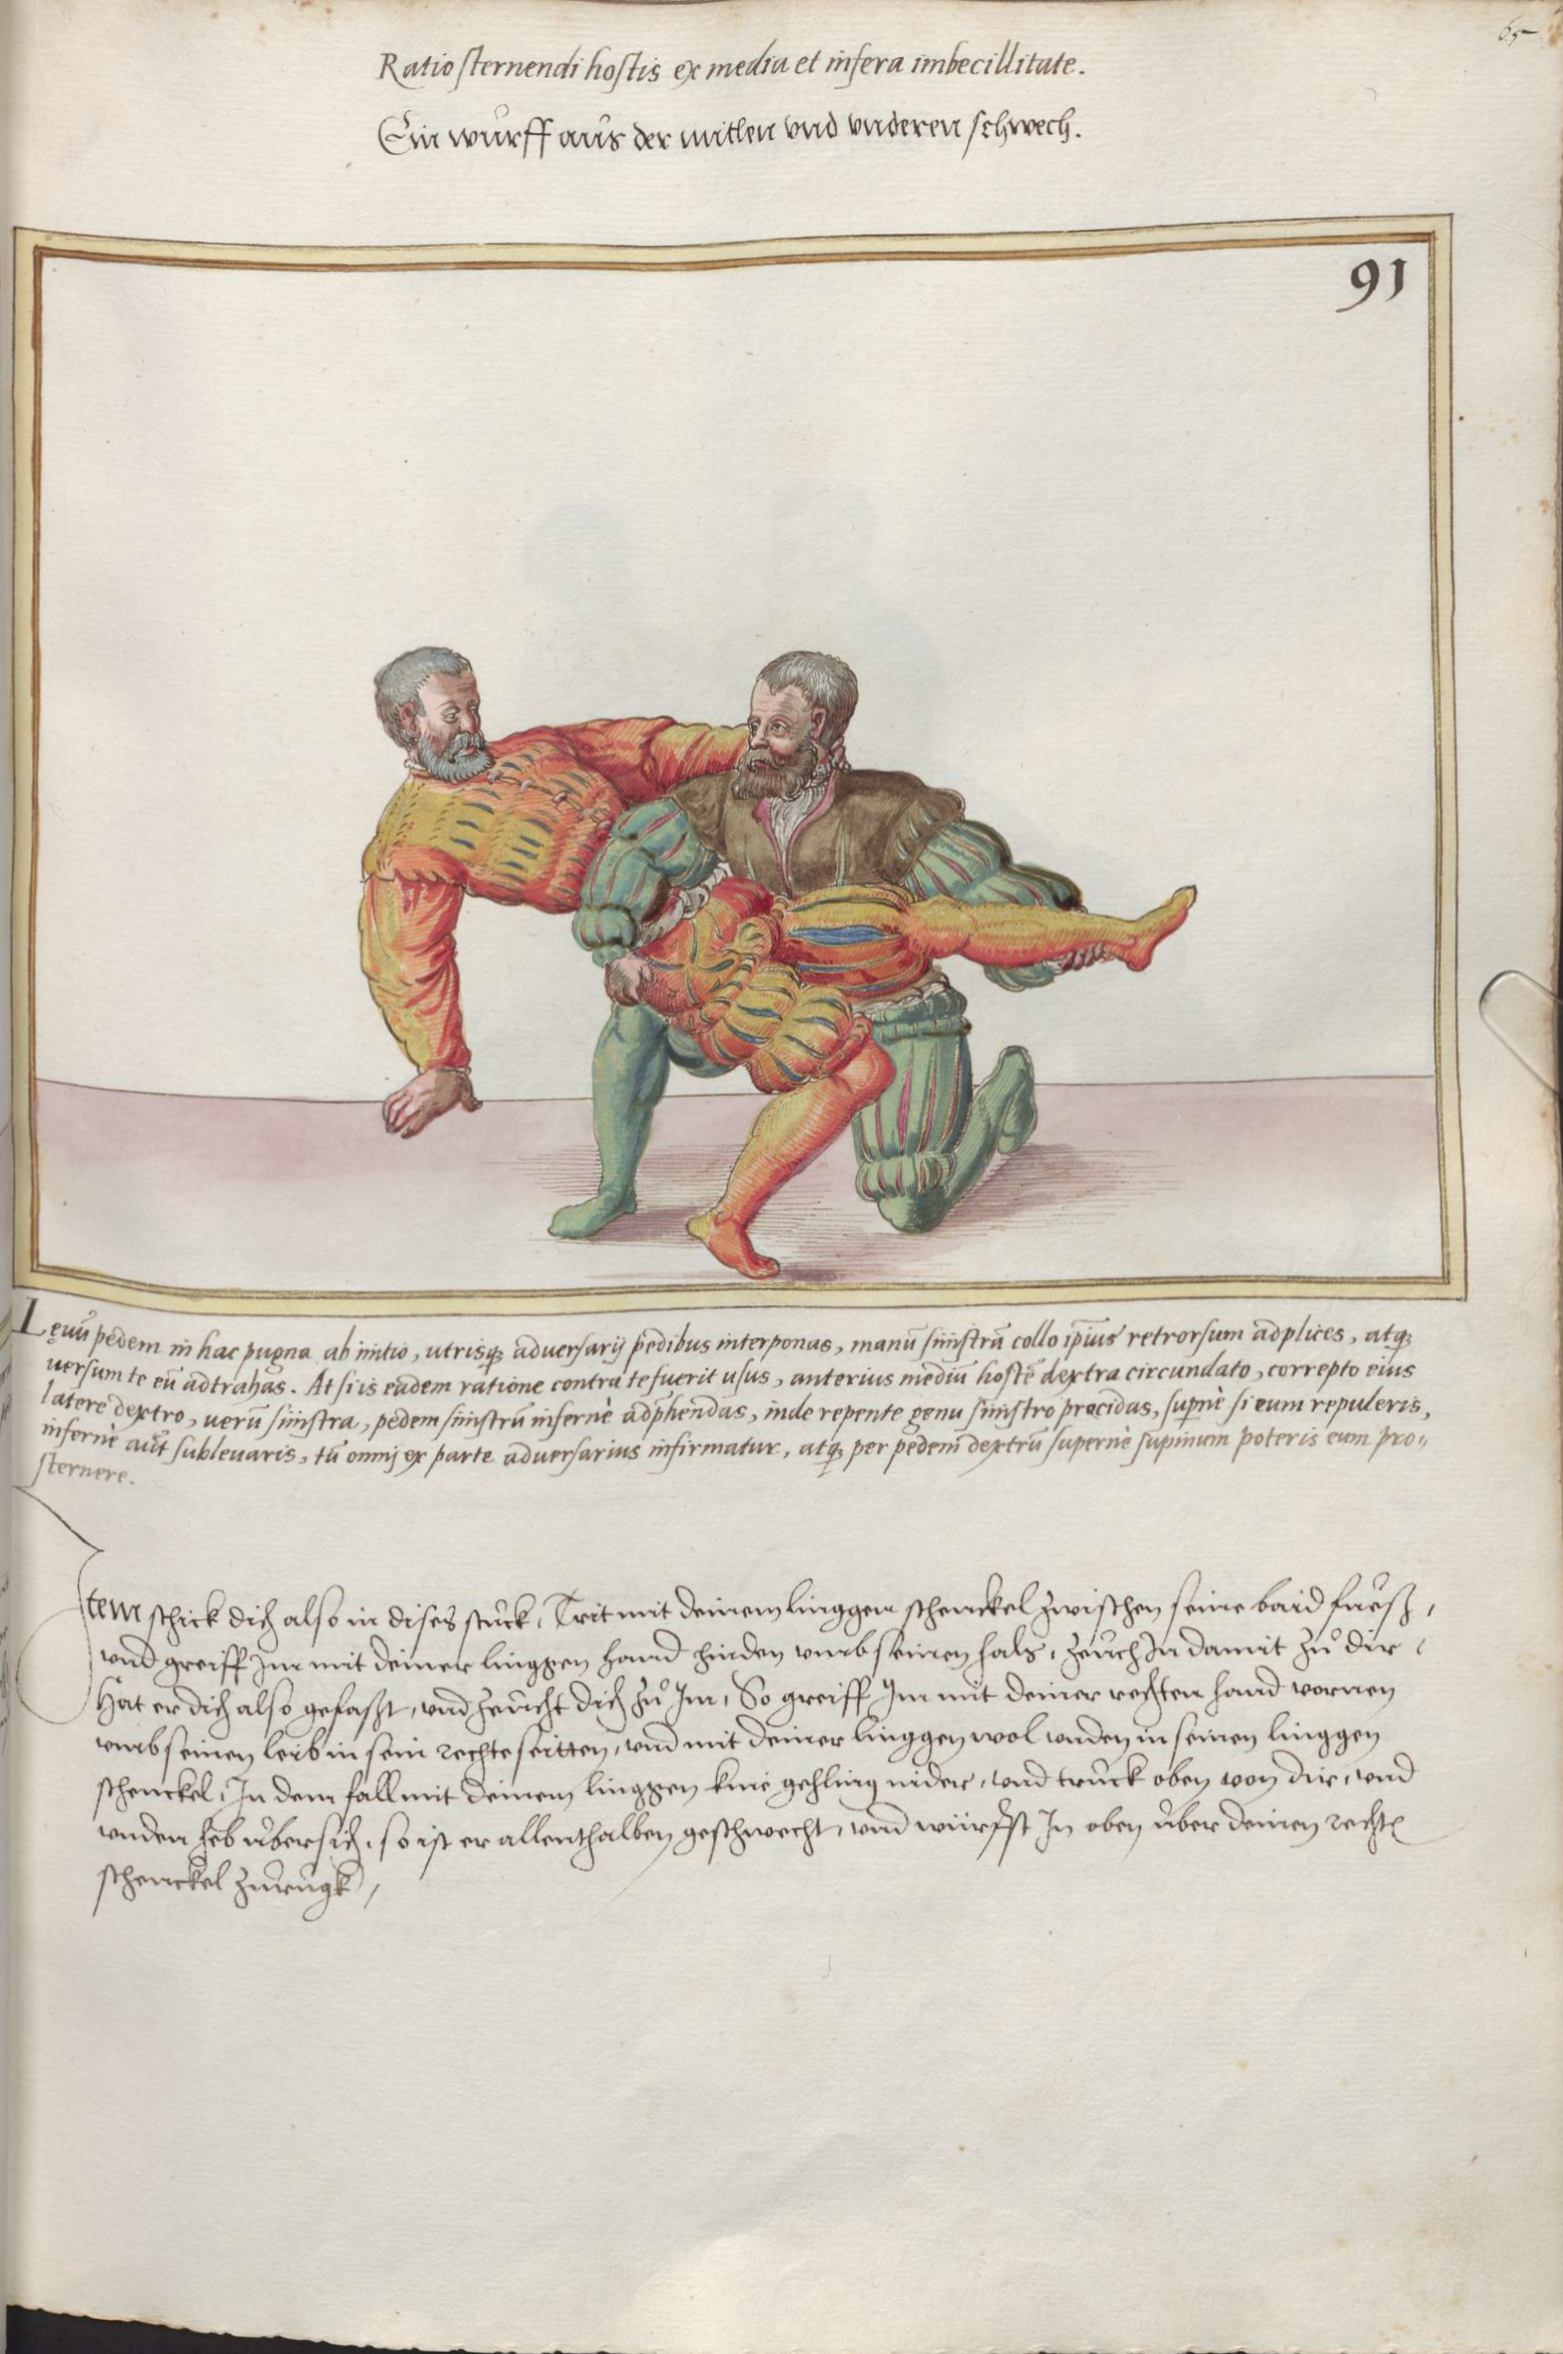 65
Ratio sternendi hostis ex media et infera imbecillitate.
Ein wurff aus der mitlen vnd vnderen schwech.
91
Lęuū pedem in hac pugna ab initio, utrisq; adversarij pedibus interponas, manū sinistrā collo ipius retrorsum adplices, atq;
uersum te eū adtrahas. At si is eādem ratione contra te fuerit usus, anterius mediū hostē dextra circundato, correpto eius
latere dextro, uerū sinistra, pedem sinistrū infernè adphendas, inde repente genu sinistro procidas, supnè si eum repuleris,
infernè aūt subleuaris, tū omni ex parte adversarius infirmatur, atq; per pedem dextrū supernè supinum poteris eum pro„
sternere.
Item schick dich also in dises stuck, Trit mit deinem linggen schenckel zwischen seine baid fueß,
vnd greiff Im mit deiner linggen hand hinden vmb seinen hals, zeuch In damit zů dir,
Hat er dich also gefaßt, vnd zeucht dich zů Im, So greiff Im mit deiner rechten hand vornen
vmb seinen leib in sein rechte seitten, vnd mit deiner linggen wol vnden in seinen linggen
schenckel, In dem fall mit deinem linggen knie gehling nider, vnd truck oben von dir, vnd
vnden heb übersich, so ist er allenthalben geschwecht, vnd würfst In oben über deinen rechtē
schenckel zurugk,